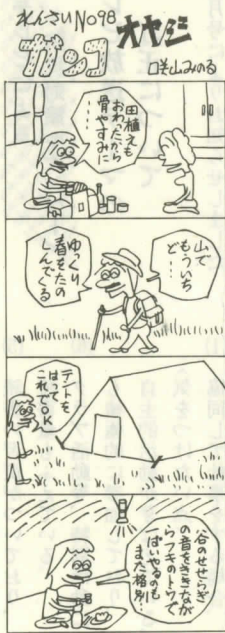 れんさいNo98
ガッコ
オヤジ
咲山みのる
田植えも
おわったから
骨やすみに
……
山で
もういち
ど…
ゆっくり
春をたの
しんでくる
テントを
はって
これでOK
谷のせせらぎ
の音をききなが
らフキのトウで
ぱいやるのも
また格別…